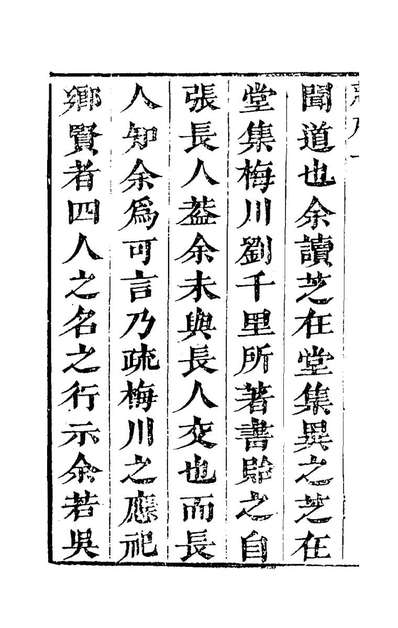 聞道也余讀芝在堂集異之芝在
堂集梅川劉千里所著書貽之自
張長人葢余未與長人交也而長
人知余爲可言乃疏梅川之應祀
鄉賢者四人之名之行示余若吳